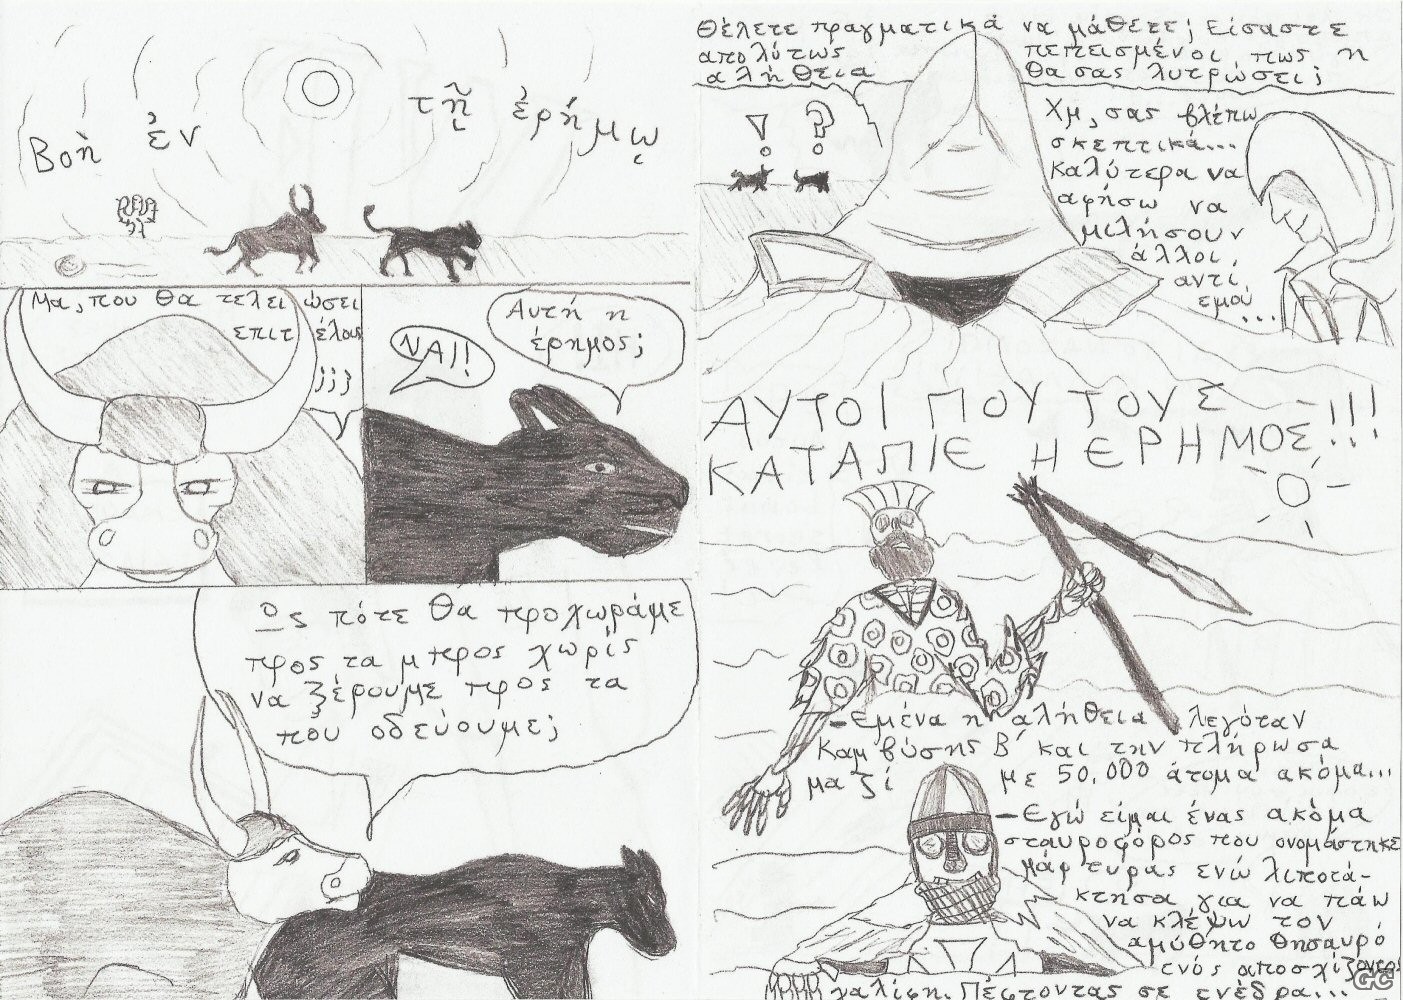 Βοὴ ἐν τῇ ἐρήμῳ
Μα, που θα τελειώσει
επιτέλους
;;;
Αυτή η
έρημος;
ΝΑΙ!
Ως πότε θα προχωράμε
προς τα μπρος χωρίς
να ξέρουμε προς τα
που οδεύουμε;
Θέλετε πραγματικά να μάθετε; Είσαστε
απολύτως πεπεισμένοι πως η
αλήθεια θα σας λυτρώσει;
! ?
Χμ, σας βλέπω
σκεπτικά...
Καλύτερα να
αφήσω να
μιλήσουν
άλλοι,
αντί
εμού
...
ΑΥΤΟΙ ΠΟΥ ΤΟΥΣ
ΚΑΤΑΠΙΕ Η ΕΡΗΜΟΣ!!!
-Εμένα η αλήθεια λεγόταν
Καμβύσης Β΄ και την πλήρωσα
μαζί με 50,000 άτομα ακόμα...
-Εγώ είμαι ένας ακόμα
σταυροφόρος που ονομάστηκε
μάρτυρας ενώ λιποτά-
κτησα για να πάω
να κλέψω τον
αμύθητο θησαυρό
ενός αποσχίζοντος
χαλίφη. Πέφτοντας σε ενέδρα...
GC